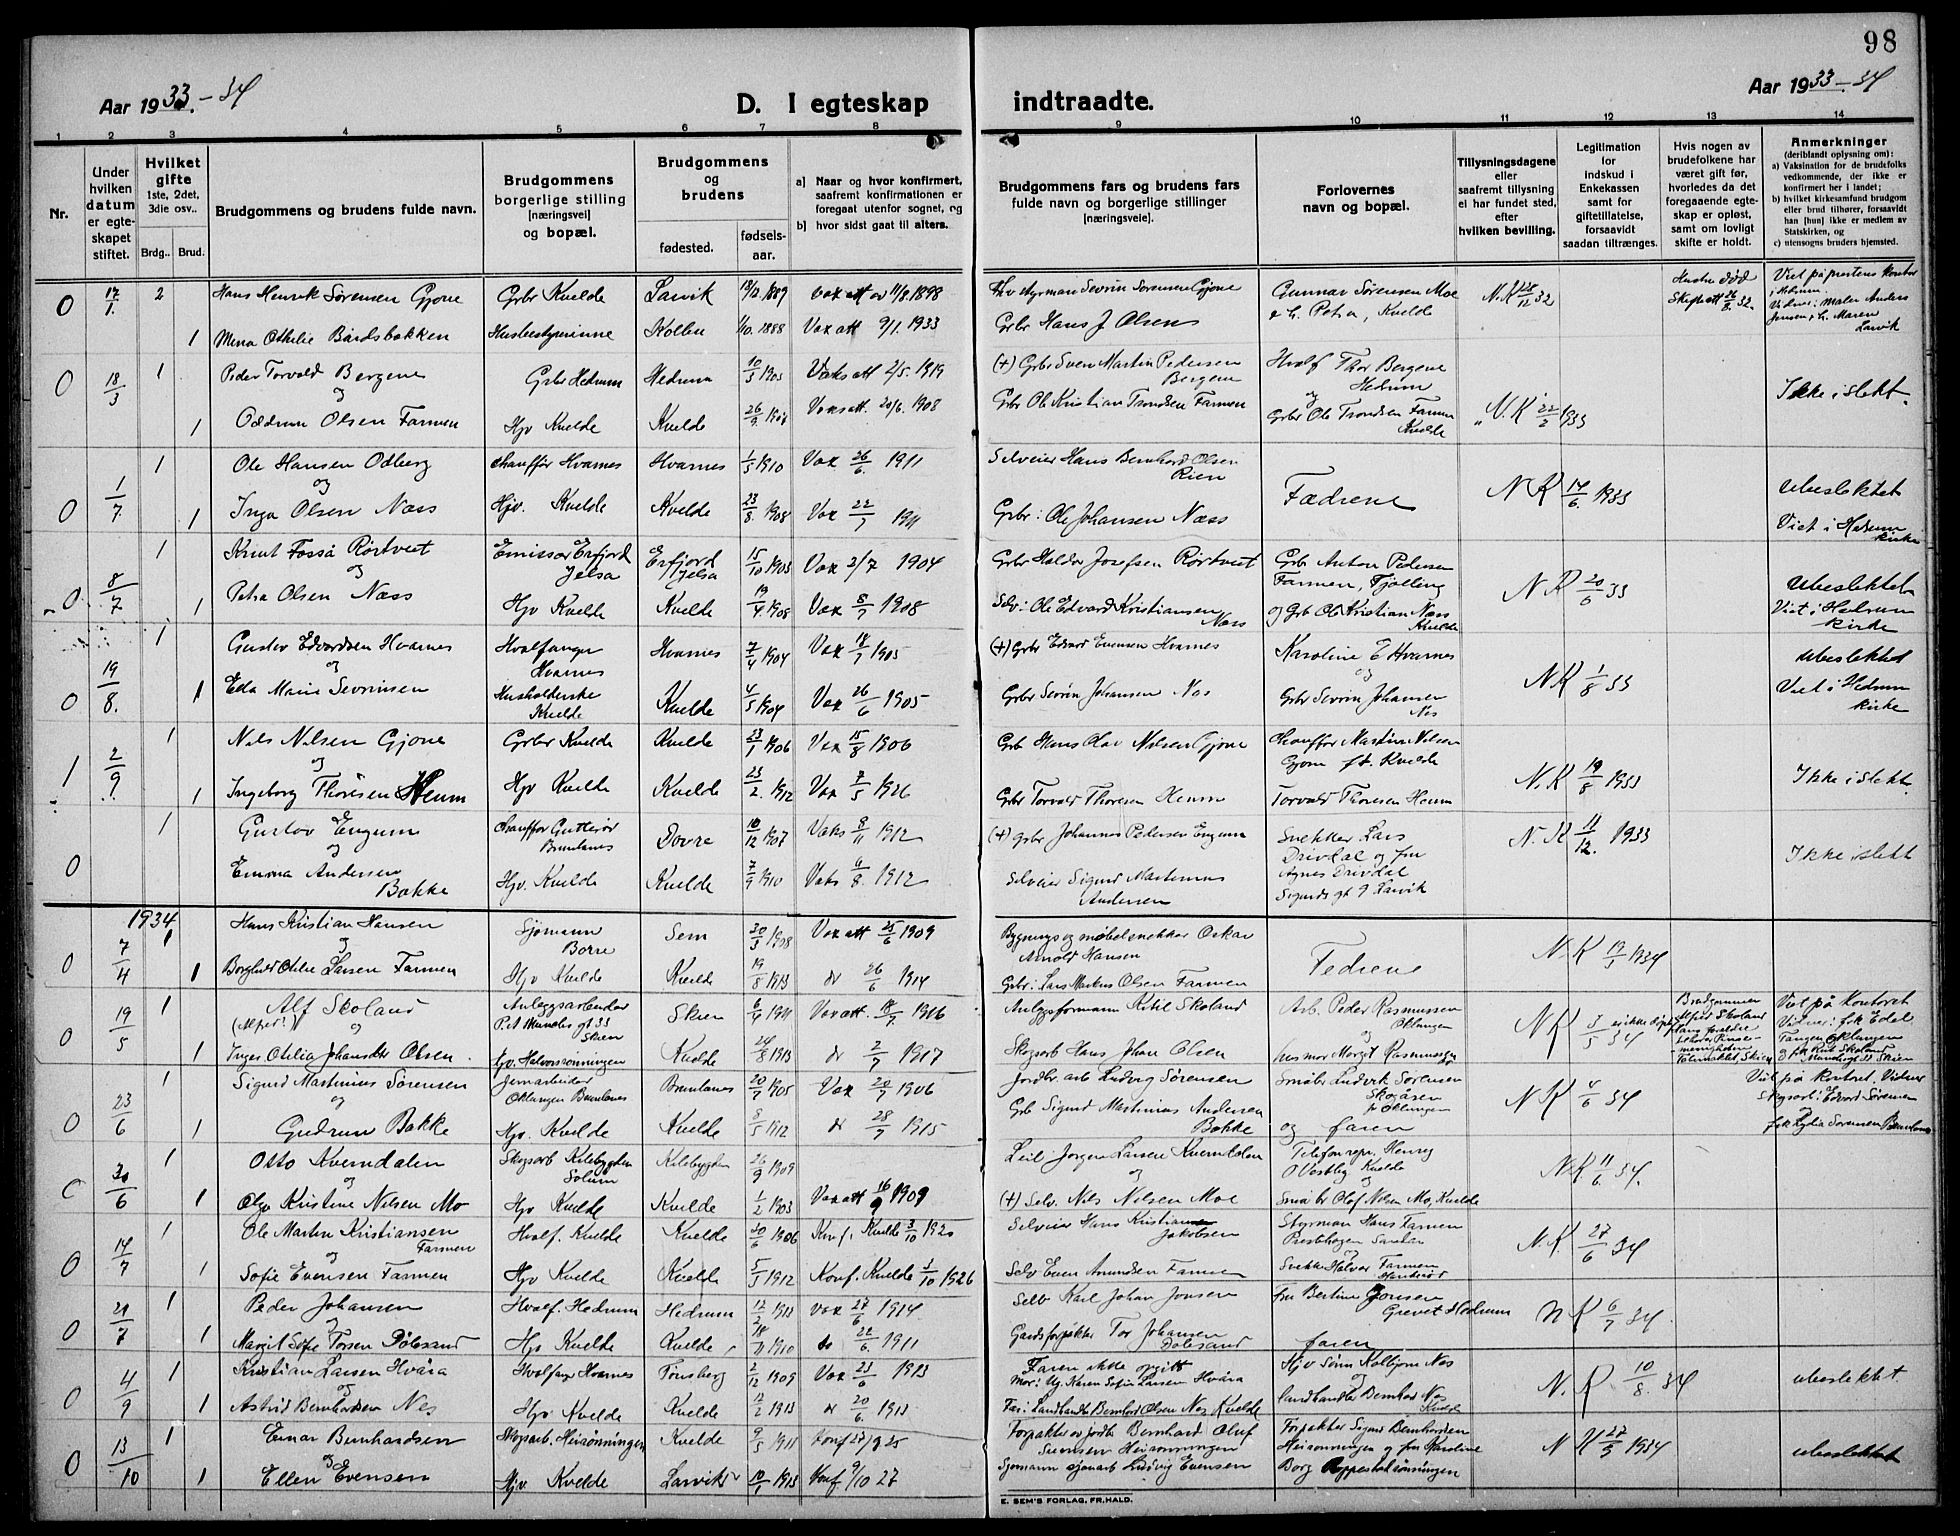 98
Aar 1933.-34
D. I egteskap indtraadte.
Aar 1933-34
1 2 3 4 5 6 7 8 9 10 11 12 13 14
Nr.
Under hvilken datum er egte-skapet stiftet.
Hvilket gifte 1ste, 2det, 3die osv.
Brdg.. Brud.
Brudgommens og brudens fulde navn.
Brudgommens borgerlige stilling [næringsvei] og bopæl.
Brudgommens og brudens
fødested.
fødsels-aar.
a) Naar og hvor konfirmert, saafremt konfirmationen er foregaat utenfor sognet, og
b) hvor sidst gaat til alters.
Brudgommens fars og brudens fars fulde navn og borgerlige stillinger [næringsveie].
Forlovernes navn og bopæl.
Tillysningsdagene eller saafremt tillysning ei har fundet sted, efter hvilken bevilling.
Legitimation for indskud i Enkekassen samt for giftetillatelse, forsaavidt saadan tiltrænges.
Hvis nogen av brudefolkene har været gift før, hvorledes da det foregaaende egte-skap er opløst, samt om lovligt skifte er holdt.
Anmerkninger (deriblandt oplysning om):
a) Vaksination for de brudefolks vedkommende, der ikke er konfirmert her i landet;
b) hvilket kirkesamfund brudgom eller brud tilhører, forsaavidt han [hun] ikke er medlem av Statskirken, og
c) utensogns bruders hjemsted.
0 17/1. 2 Hans Henrik Sørensen Gjone Grbr Kvelde Larvik 1889 vax att av 11/8. 1898 Gunnar Sørensen Moe N.K 28/12 32 Hustru død Viet på prestens kontor
1 Mina Othilie Bårdsbakken Husbestyrinne Kollen 1/10. 1888 Vax att 9/1. 1933 Grbr Hans J Olsen & h. Petra, Kvelde Skifteatt 26/8. 32. i Hedrum. Vidner: Maler Anders Jensen & h. Maren Larvik
0 18/3 1 Peder Torvald Bergene Grbr Hedrum Hedrum 10/3 1905 Vaks att 2/5. 1919 (+) Grbr Sven Martin Pedersen Bergene Hvalf Thor Bergene Hedrum Ikke i slekt.
og
1 Oddrun Olsen Farmen Hjv Kvelde Kvelde 26/9 Vaks att. 20/6. 1908 Grbr Ole Kristian Trondsen Farmen og Grbr Ole Trondsen Farmen Kvelde N.K 22/2 1933
0 1/7 1 Ole Hansen Odberg chauffør Hvarnes Hvarnes 1/5 1910 Vax 26/6. 1911 Selveier Hans Bernhard Olsen Rien Fædrene N K 14/6. 1933 Ubeslektet
og
1 Inga Olsen Næss Hjv. Kvelde Kvelde 23/8. 1908 Vax 22/7 1911 Grbr: Ole Johansen Næss Viet i Hedrum kirke
0 8/7 1 Knut Fosså Rørtveit Emissær Erfjord Jelsa Erfjord Jelsa 15/10 1903 Vax 2/7 1904 Grbr Halder Josefsen Rørtveit Grb Anton Pedersen Farmen, Tjølling N K 20/6 33 Ubeslektet
og
1 Petra Olsen Næss Hjv Kvelde Kvelde 19/4. 1908 Vax 8/7 1908 Selv: Ole Edvard Kristiansen Næss og Grb Ole Kristian Næss Kvelde Viet i Hedrum kirke
0 19/8. 1 Gustav Edvardsen Hvarnes Hvalfanger Hvarnes Hvarnes 7/4 1904 Vax 18/7 1905 (+) Grbr Edvard Evensen Hvarnes Karoline E Hvarnes N.K 1/8 33 Ubeslektet
og
1 Eda Marie Sevrinsen Husholderske Kvelde Kvelde 4/5 1904 Vax 26/6 1905 Grbr Sevrin Johansen Nes og Grbr Sevrin Johansen Nes Viet i Hedrum kirke
1 2/9 1 Nils Nilsen Gjone Grbr Kvelde Kvelde 23/1 1906 Vax 15/8 1906 Grb Hans Olav Nilsen Gjone chauffør Martin Nilsen Gjone Kvelde N.K 19/8 1933 Ikke i slekt
og
1 Ingeborg Thoresen Heum Hjv Kvelde Kvelde 23/2. 1912 Vax 7/5 1926 Grbr Torvald Thoresen Heum Torvald Thoresen Heum
0 1 Gustav Engum Chauffør Brunlanes Dovre 10/12 1907 Vaks 8/11 1912 (+) grbr Johannes Pedersen Engum Snekker Lars Drivdal og fru N.K 11/12. 1933 Ikke i slekt
og
Emma Andersen Bakke Hjv. Kvelde Kvelde 7/9 1910 Vaks 6/8. 1912 Selveier Sigurd Martinius Andersen Agnes Drivdal Sigurds gt 9 Larvik
1934
0 7/4 1 Hans Kristian Hansen Sjømann Borre Sem 20/3 1908 Vax att 25/6 1909 Bygnings og møbelsnekker Oskar Arnold Hansen Fedrene N.K 12/3 1934
og
1 Borghild Otilie Larsen Farmen Hjv Kvelde Kvelde 19/8 1913 do 26/6 1914 Grbr: Lars Markus Olsen Farmen
0 19/5 1 Alf Skoland (Alfred!) Anleggsarbeider Skien Skien 6/4 1911 Vax att. 18/7. 1916 Anleggsformann Kitil Skoland Arb. Peder Rasmussen Oklungen N K 3/5 34 Brudgommen Alfred Skoland er ikke døpt Viet på Kontoret
og
1 Inger Otilia Johansdtr Olsen. Hjv. Halvorsrønningen Kvelde 24/8 1913 do 2/7 1917 Skogsarb Hans Johan Olsen husmor Margit Rasmussen Vidner: frk Edel Tangen Oklungen & frk Rut Skoland Skien
0 23/6 1 Sigurd Martinius Sørensen Jernarbeider Oklungen Brunlanes Brunlanes 20/7 1905 Vax 20/7 1906 Jordbr. arb Ludvig Sørensen Småbr Ludvik Sørensen Skogåsen pr Oklungen N K 4/6 34 Viet på kontoret. Vidner
og
1 Gudrun Bakke Hjv. Kvelde Kvelde 8/5 1912 do 28/7 1915 Grb Sigurd Martinius Andersen Bakke og faren Skogsarb: Edvard Sørensen & frk Lydia Sørensen Brunlanes
0 30/6 1 Otto Kverndalen Skogsarb Kilebygden Solum Kilebygden 26/9 1909 Leil Jørgen Larsen Kverndalen Telefonrepr. Henry O Vestby Kvelde N.K 11/6. 34.
1 Olga Kristine Nilsen Mo Hjv Kvelde Kvelde 1/2 1903 Vax att 16/9 1909 (+) Selv. Nils Nilsen Moe Småbr Olaf Nilsen Mo, Kvelde
0 14/7 1 Ole Martin Kristiansen Farmen Hvalf. Kvelde Kvelde 20/6 1906 Konf. Kvelde 3/10 Selveier Hans Kristiansen Jakobsen Styrman Hans Farmen N.K. 27/6 34
og
1 Sofie Evensen Farmen Hjv Kvelde Kvelde 5/5 1912 Konf. Kvelde 3/10 1926 Selv Even Amundsen Farmen Snekker Halvor Farmen
0 21/7 1 Peder Johansen Hvalf. Hedrum Hedrum 12/2 1913 vax 27/6 1914 Selv Karl Johan Jonsen fru Bertine Jonsen Grevet Hedrum N K 6/7 34.
og
1 Margit Sofie Torsen Dølesand Hjv Kvelde Kvelde 18/11 1910 do 22/6. 1911 Gardsforpakter Tor Johansen Dølesand faren
0 4/9 1 Kristian Larsen Hvåra Hvalfanger Hvarnes Tønsberg 2/12 1909 Vax 23/6 1913 Faren ikke opgitt Mor: Ug. Karen Sofie Larsen Hvåra Hjv Sønn Kolbjørn Nes N.K 10/8. 34 ubeslektet.
og
1 Astrid Bernhardsen Nes Hjv Kvelde Kvelde 12/2 1913 do 20/6. 1913 Far: Landhandler Bernhard Olsen Nes Kvelde Landhandler Bernhard Nes Kvelde
0 13/10 1 Einar Bernhardsen Skogarb. Heirønningen Kvelde 9/5 1911 Konf 27/9 25 Forpakter av jordbr Bernhard Oluf Svensen Heirønningen Forpakter Sigurd Bernhardsen Heirønningen og fru Karoline N K 27/9 1934 ubeslektet
og
1 Ellen Evensen Hjv Kvelde Larvik 10/1 1913 Konf 9/10 27 Sjømann sjauarb Ludvig Evensen Borg Oppestadrønningen
E. SEM'S FORLAG, FR.HALD.